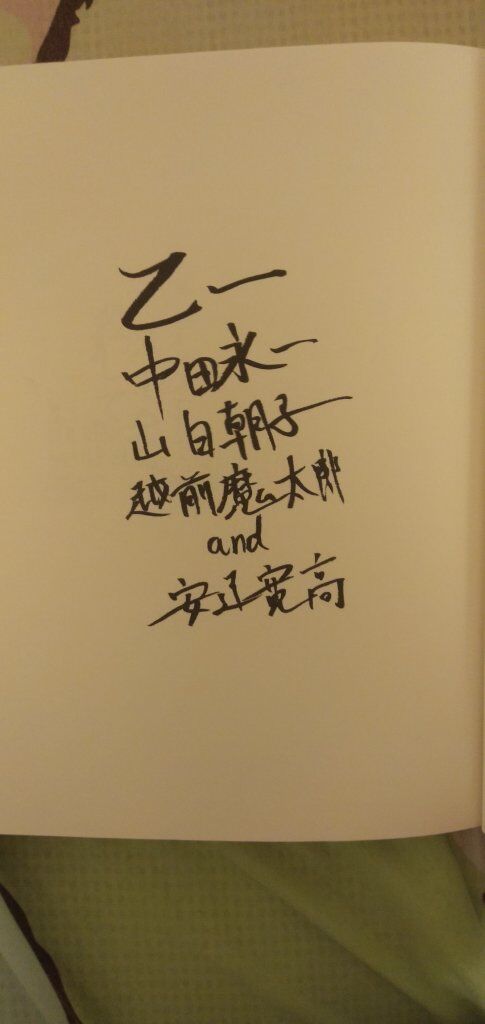 乙一
中田永一
山白朝子
越前魔太郎
and
安达宽高